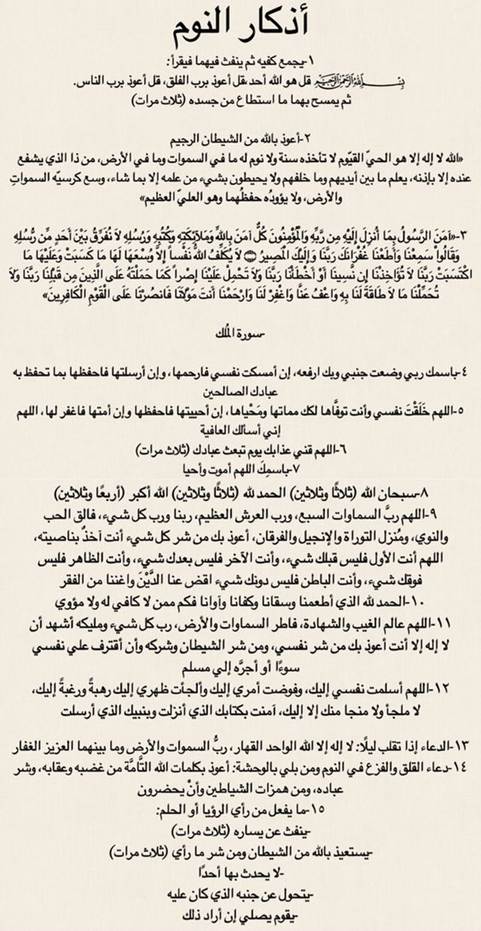 أذكار النوم
١-يجمع كفيه ثم ينفث فيهما فيقرأ:
بسم الله الرحمن الرحيم قل هو الله أحد، قل أعوذ برب الفلق، قل أعوذ برب الناس.
ثم يمسح بهما ما استطاع من جسده (ثلاث مرات)
٢-أعوذ بالله من الشيطان الرجيم
«الله لا إله إلا هو الحيّ القيّوم لا تأخذه سنة ولا نوم له ما في السموات وما في الأرض، من ذا الذي يشفع
عنده إلا بإذنه، يعلم ما بين أيديهم وما خلفهم ولا يحيطون بشيء من علمه إلا بما شاء، وسع كرسيّه السمواتِ
والأرض، ولا يؤودُه حفظُهما وهو العليّ العظيم»
٣-«آمَنَ الرَّسُولُ بِمَا أُنزِلَ إِلَيْهِ مِن رَّبِّهِ وَالْمُؤْمِنُونَ كُلٌّ آمَنَ بِاللَّهِ وَمَلَائِكَتِهِ وَكُتُبِهِ وَرُسُلِهِ لَا نُفَرِّقُ بَيْنَ أَحَدٍ مِّن رُّسُلِهِ
وَقَالُوا سَمِعْنَا وَأَطَعْنَا غُفْرَانَكَ رَبَّنَا وَإِلَيْكَ الْمَصِيرُ لَا يُكَلِّفُ اللَّهُ نَفْسًا إِلَّا وُسْعَهَا لَهَا مَا كَسَبَتْ وَعَلَيْهَا مَا
اكْتَسَبَتْ رَبَّنَا لَا تُؤَاخِذْنَا إِن نَّسِينَا أَوْ أَخْطَأْنَا رَبَّنَا وَلَا تَحْمِلْ عَلَيْنَا إِصْرًا كَمَا حَمَلْتَهُ عَلَى الَّذِينَ مِن قَبْلِنَا رَبَّنَا وَلَا
تُحَمِّلْنَا مَا لَا طَاقَةَ لَنَا بِهِ وَاعْفُ عَنَّا وَاغْفِرْ لَنَا وَارْحَمْنَا أَنتَ مَوْلَانَا فَانصُرْنَا عَلَى الْقَوْمِ الْكَافِرِينَ»
-سورة المُلك
٤-باسمك ربي وضعت جنبي وبك ارفعه، إن أمسكت نفسي فارحمها، وإن أرسلتها فاحفظها بما تحفظ به
عبادك الصالحين
٥-اللهم خَلَقْتَ نفسي وأنت توفّاها لكَ مماتها ومَحْياها، إن أحييتها فاحفظها وإن أمتها فاغفر لها، اللهم
إني أسألك العافية
٦-اللهم قني عذابك يوم تبعث عبادك (ثلاث مرات)
٧-باسمِكَ اللهم أموت وأحيا
٨-سبحان الله (ثلاثًا وثلاثين) الحمد لله (ثلاثًا وثلاثين) الله أكبر (أربعًا وثلاثين)
٩-اللهم ربَّ السماوات السبع، ورب العرش العظيم، ربنا ورب كل شيء، فالق الحب
والنوى، ومُنزل التوراة والإنجيل والفرقان، أعوذ بك من شر كل شيء أنت آخذٌ بناصيته،
اللهم أنت الأول فليس قبلك شيء، وأنت الآخر فليس بعدك شيء، وأنت الظاهر فليس
فوقك شيء، وأنت الباطن فليس دونك شيء اقض عنا الدَّيْنَ واغننا من الفقر
١٠-الحمد لله الذي أطعمنا وسقانا وكفانا وآوانا فكم ممن لا كافي له ولا مؤوي
١١-اللهم عالم الغيب والشهادة، فاطر السماوات والأرض، رب كل شيء ومليكه أشهد أن
لا إله إلا أنت أعوذ بك من شر نفسي، ومن شر الشيطان وشركه وأن أقترف علي نفسي
سوءًا أو أجرَّه إلي مسلم
١٢-اللهم أسلمت نفسي إليك، وفوضت أمري إليك وألجأت ظهري إليك رهبةً ورغبةً إليك،
لا ملجأ ولا منجا منك إلا إليك، آمنت بكتابك الذي أنزلت وبنبيك الذي أرسلت
١٣-الدعاء إذا تقلب ليلًا: لا إله إلا الله الواحد القهار، ربُّ السموات والأرض وما بينهما العزيز الغفار
١٤-دعاء القلق والفزع في النوم ومن بلي بالوحشة: أعوذ بكلمات الله التَّامَّة من غضبه وعقابه، وشر
عباده، ومن همزات الشياطين وأنْ يحضرون
١٥-ما يفعل من رأي الرؤيا أو الحلم:
-ينفث عن يساره (ثلاث مرات)
-يستعيذ بالله من الشيطان ومن شر ما رأي (ثلاث مرات)
-لا يحدث بها أحدًا
-يتحول عن جنبه الذي كان عليه
-يقوم يصلي إن أراد ذلك